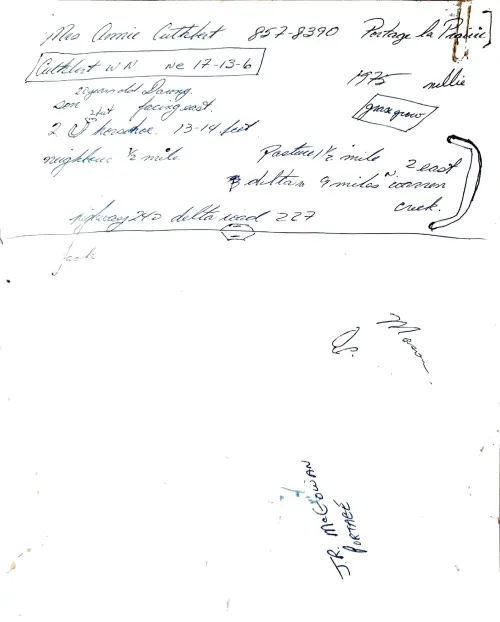 Mrs Annie Cuthbert 857-8390 Portage la Prairie
Cuthbert W N NE 17-13-6
1975 nellie
22 years old Danny.
son 2 hat facing east.
grass grow
2 horseshoe. 13-14 feet
neighbour 1/2 mile. Pasture 1 1/2 mile 2 east
delta N 9 miles N. corner
creek.
highway 240 delta road 227
Jack
Mason
J.R. McGowan
Portage